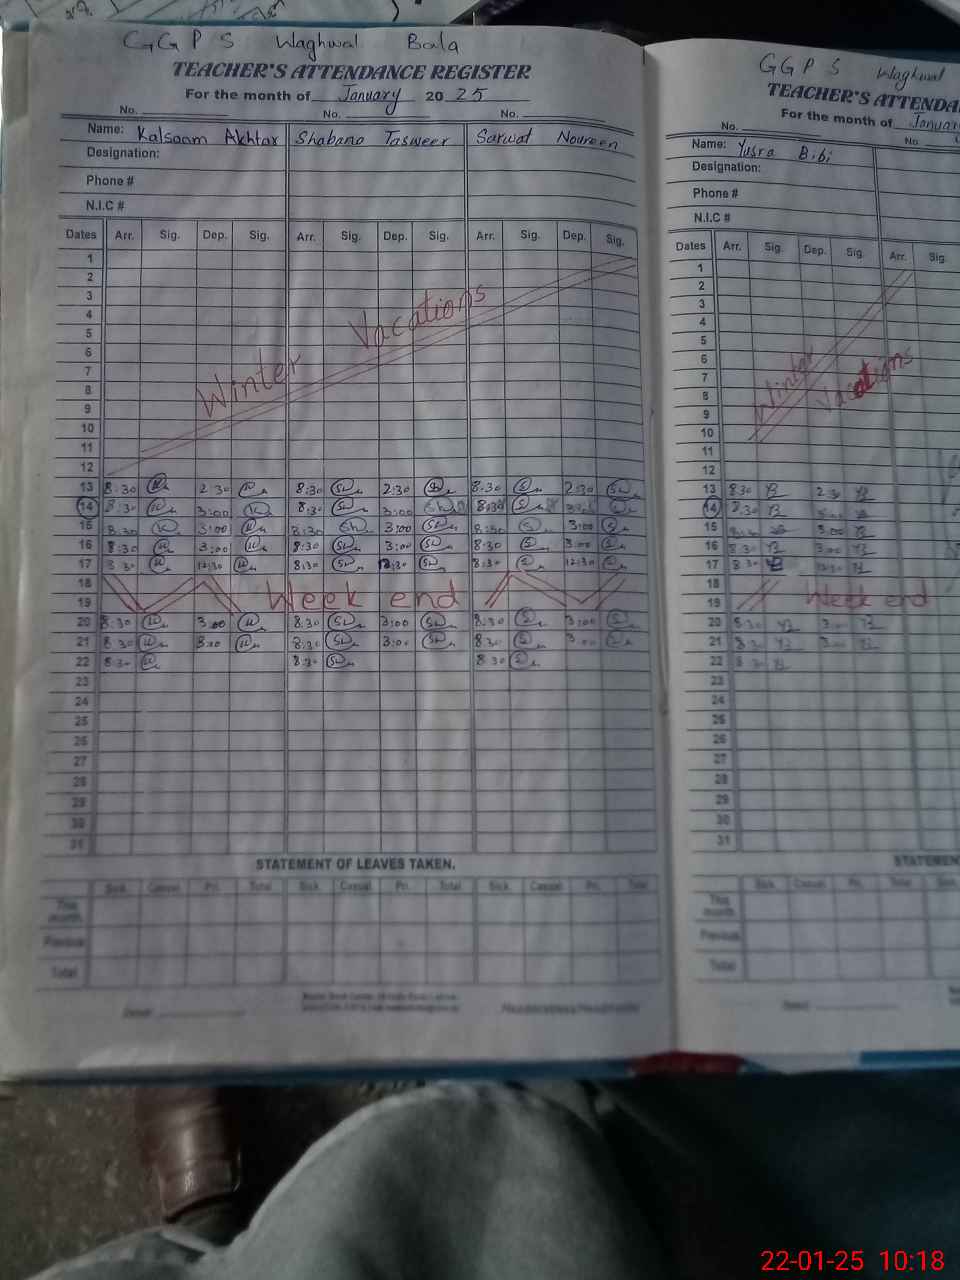 GGPS Waghwal Bala
TEACHER'S ATTENDANCE REGISTER
For the month of January 20 25
No. No. No.
Name: Kalsoom Akhtar Shabana Tasweer Sarwat Noureen
Designation:
Phone #
N.I.C #
Dates Arr. Sig. Dep. Sig. Arr. Sig. Dep. Sig. Arr. Sig. Dep. Sig.
1
2
3
4
5
6
7
8
9
10
11
12
Winter Vacations
13 8:30 2:30 8:30 2:30 8:30 2:30
14 8:30 3:00 8:30 3:00 8:30
15 8:30 3:00 8:30 3:00 8:30 3:00
16 8:30 3:00 8:30 3:00 8:30 3:00
17 8:30 12:30 8:30 12:30 8:30 12:30
18
19
Week end
20 8:30 3:00 8:30 3:00 8:30 3:00
21 8:30 3:00 8:30 3:00 8:30 3:00
22 8:30 8:30 8:30
23
24
25
26
27
28
29
30
31
STATEMENT OF LEAVES TAKEN.
Sick. Casual. Pri. Total Sick. Casual. Pri. Total. Sick. Casual. Pri. Total
This month.
Previous
Total
GGPS Waghwal
TEACHER'S ATTENDA
For the month of Januar
No. No.
Name: Yusra Bibi
Designation:
Phone #
N.I.C #
Dates Arr. Sig. Dep. Sig. Arr. Sig.
1
2
3
4
5
6
7
8
9
10
11
12
Winter Vacations
13 8:30 2:30
14 8:30
15 3:00
16 8:30 3:00
17 8:30 12:30
18
19
Week end
20 8:30 3:00
21 8:30 3:00
22 8:30
23
24
25
26
27
28
29
30
31
STATEMEN
Sick. Casual. Pri. Total Sick.
This month.
Previous
Total
22-01-25 10:18